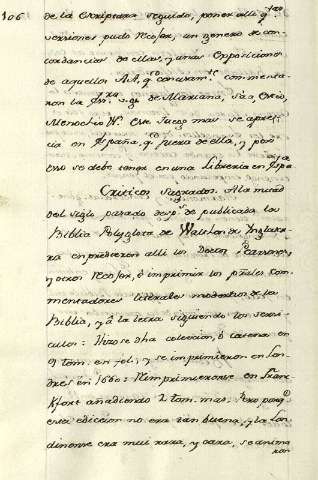 106
de la Escriptura seguido, poner alli qtas
versiones pudo recoger, un genero de con-
cordancias de ellas, y unas Exposiciones
de aquellos AA. qe concisamte comenta-
ron la Escra, v.g. de Mariana, Sa, Grocio,
Menochio &. Este Juego mas se apre-
cia en España, qe fuera de ella, y por
eso se debe tener en una Libreria en Espa
Criticos Sagrados. A la mitad
del siglo pasado desps de publicada la
Biblia Polyglota de Walton de Inglater-
ra emprendieron alli los Doctos Pearson,
y otros recoger, e imprimir los pñales com-
mentadores literales modernos de la
Biblia, y â la letra siguiendo los versi-
culos: Hizose dha coleccion, ô catena en
9 tom. en fol.; y se imprimieron en Lon-
dres en 1660: Reimprimieronse en Franc
Kfort añadiendo 2 tom. mas. Pero porqe
esta edicion no era tan buena, y la Lon-
dinense era mui rara, y cara, se anima
ron